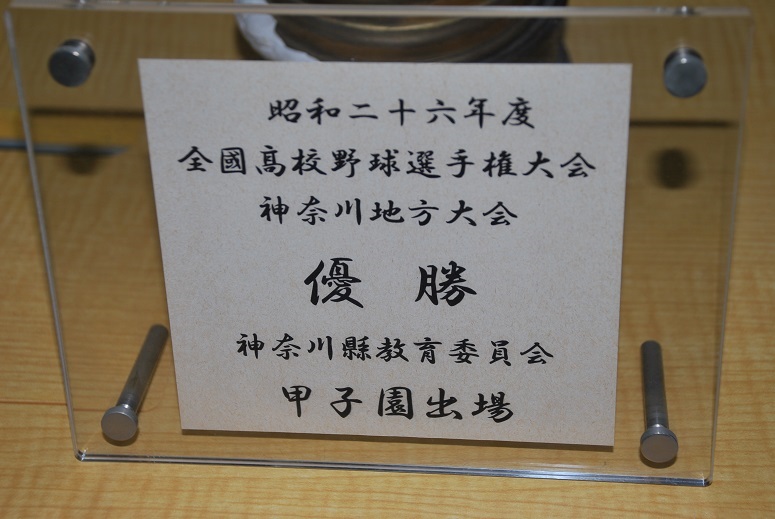 昭和二十六年度
全國高校野球選手権大会
神奈川地方大会
優勝
神奈川縣教育委員会
甲子園出場